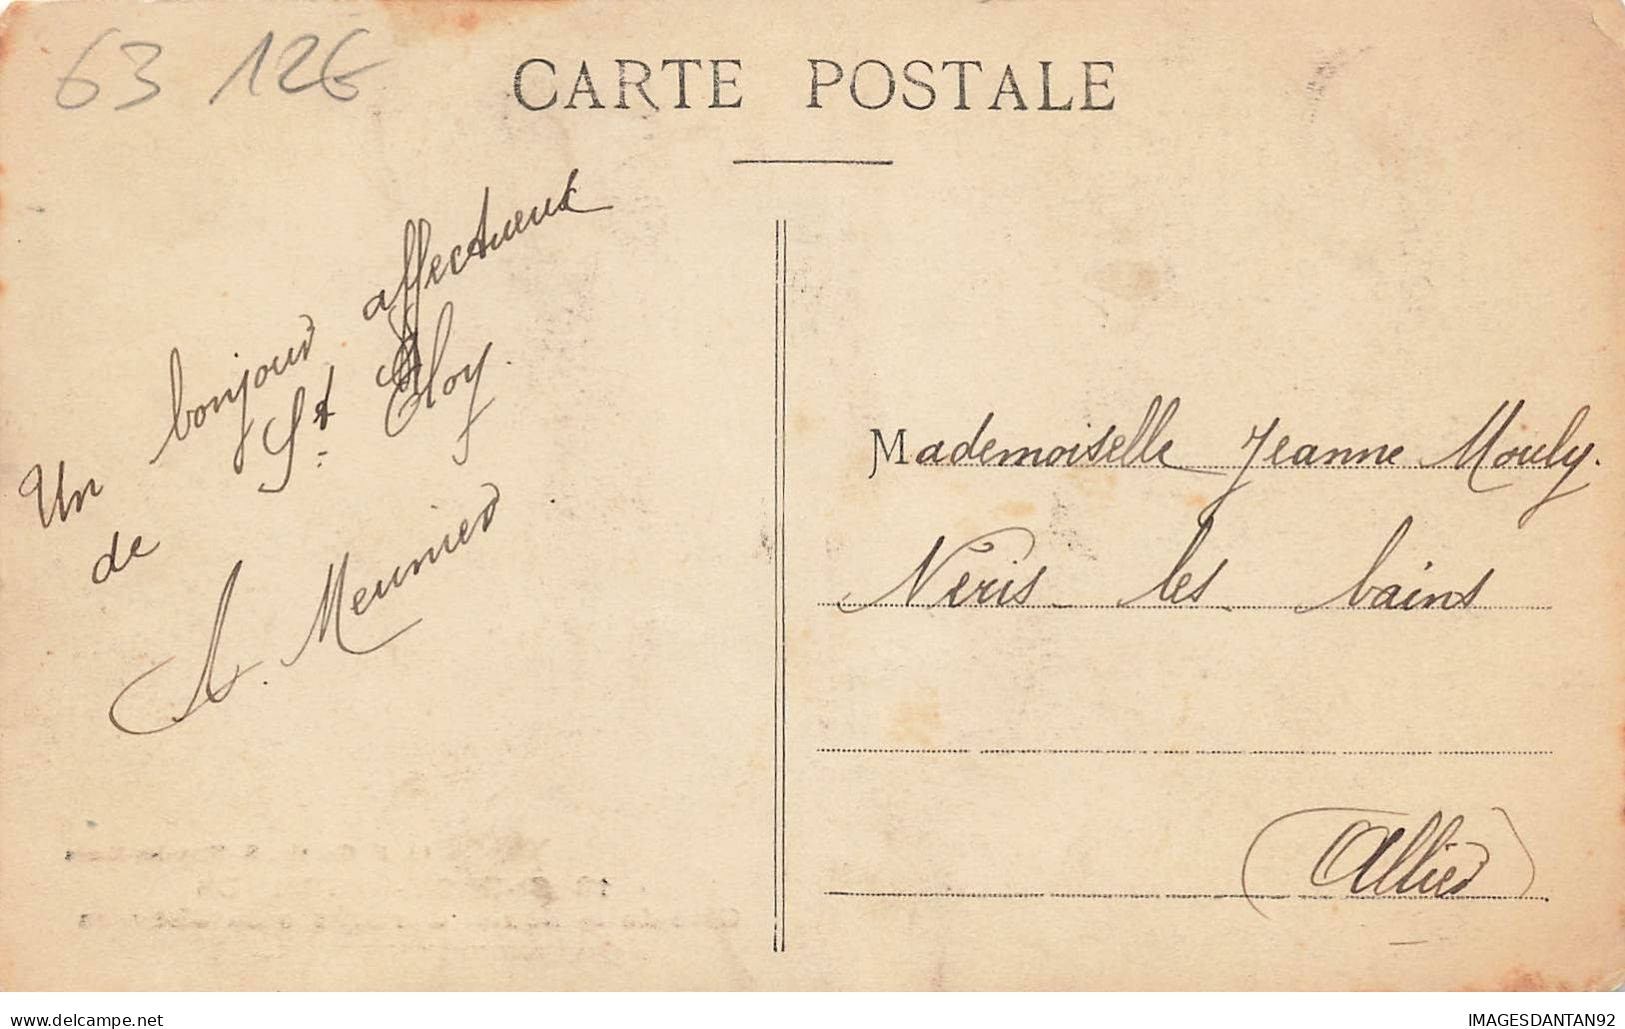 63 12€
CARTE POSTALE
Un bonjour affectueux
de St Eloy.
A. Meunier
Mademoiselle Jeanne Mouly.
Neris les bains
(Allier)
www.delcampe.net
IMAGESDANTAN92